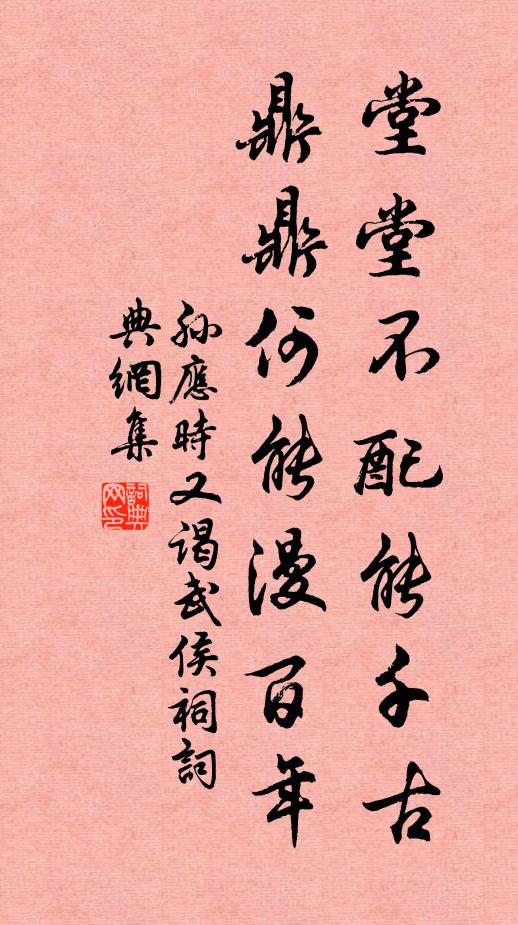 堂堂不配能千古
鼎鼎何能漫百年
孙應時又谒武侯祠詞
典網集
詞典网印